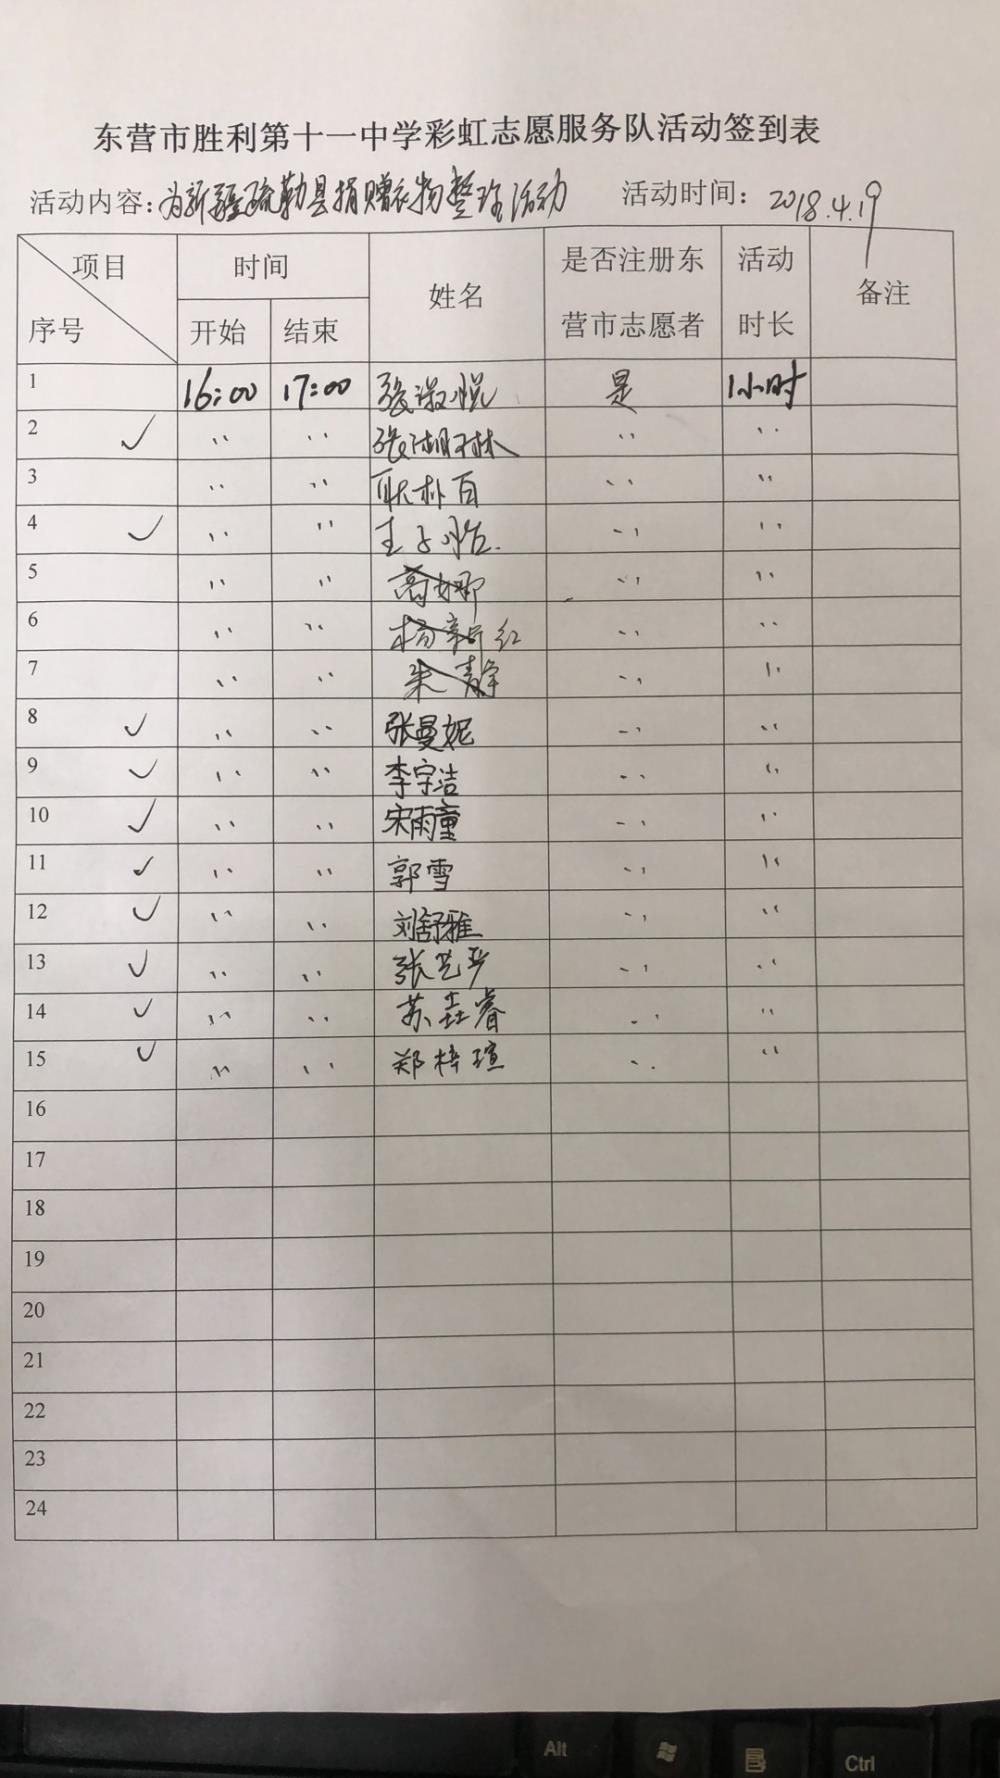 东营市胜利第十一中学彩虹志愿服务队活动签到表
活动内容：为新疆疏勒县捐赠衣物整理活动 活动时间：2018.4.19
项目 时间 姓名 是否注册东营市志愿者 活动时长 备注
序号 开始 结束
1 16:00 17:00 张淑悦 是 1小时
2 ✓ '' '' 张湖林 '' ''
3 '' '' 耿朴百 '' ''
4 ✓ '' '' 王子怡 '' ''
5 '' '' 高娜 '' ''
6 '' '' 杨新红 '' ''
7 '' '' 朱静 '' ''
8 ✓ '' '' 张曼妮 '' ''
9 ✓ '' '' 李宇洁 '' ''
10 ✓ '' '' 宋雨童 '' ''
11 ✓ '' '' 郭雪 '' ''
12 ✓ '' '' 刘舒雅 '' ''
13 ✓ '' '' 张艺 '' ''
14 ✓ '' '' 苏垚睿 '' ''
15 ✓ '' '' 郑梓瑄 '' ''
16
17
18
19
20
21
22
23
24
Alt Ctrl